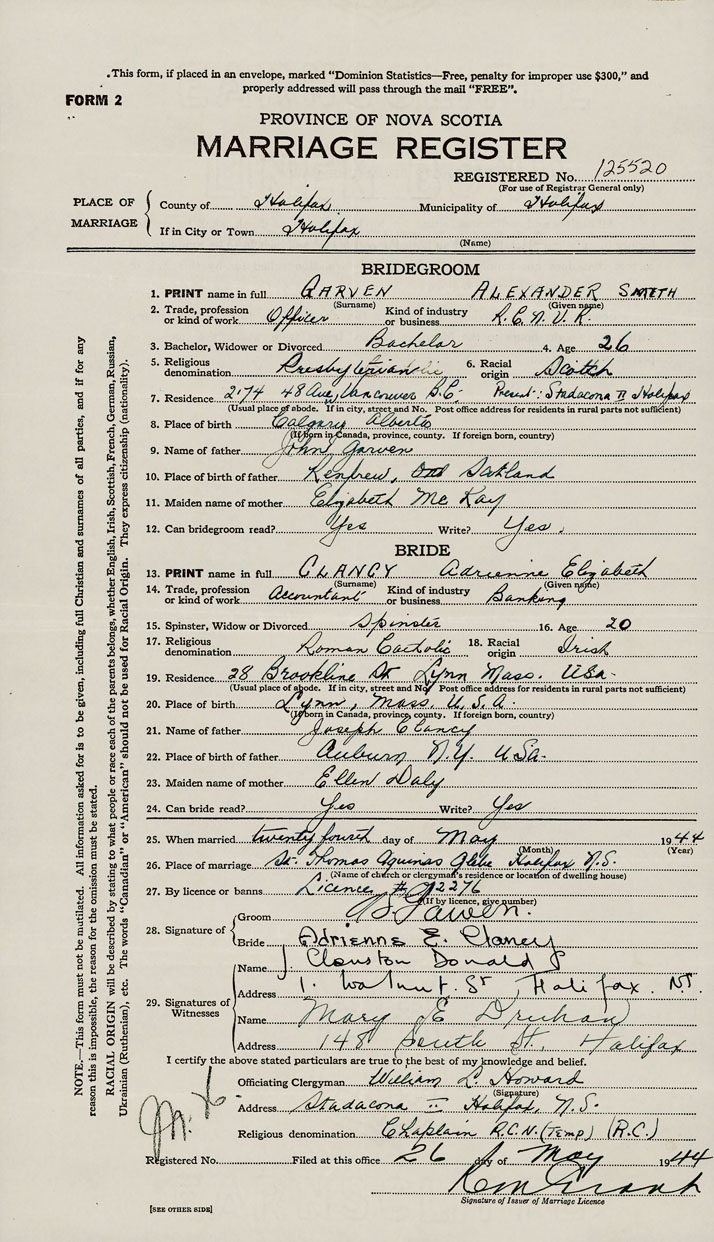 .This form, if placed in an envelope, marked “Dominion Statistics—Free, penalty for improper use $300,” and
properly addressed will pass through the mail “FREE”.
FORM 2
PROVINCE OF NOVA SCOTIA
MARRIAGE REGISTER
REGISTERED No. 125520
(For use of Registrar General only)
PLACE OF MARRIAGE
County of Halifax Municipality of Halifax
If in City or Town Halifax
(Name)
BRIDEGROOM
1. PRINT name in full GARVEN ALEXANDER SMITH
(Surname) (Given name)
2. Trade, profession or kind of work Officer Kind of industry or business R.C.N.V.R.
3. Bachelor, Widower or Divorced Bachelor 4. Age 26
5. Religious denomination Presbyterian 6. Racial origin Scotch
7. Residence 2174 48 Ave, Vancouver B.C. Present: Stadacona II Halifax
(Usual place of abode. If in city, street and No. Post office address for residents in rural parts not sufficient)
8. Place of birth Calgary Alberta
(If born in Canada, province, county. If foreign born, country)
9. Name of father John Garven
10. Place of birth of father Renfrew, Scotland
11. Maiden name of mother Elizabeth McKay
12. Can bridegroom read? Yes Write? Yes.
BRIDE
13. PRINT name in full CLANCY Adrienne Elizabeth
(Surname) (Given name)
14. Trade, profession or kind of work Accountant Kind of industry or business Banking
15. Spinster, Widow or Divorced Spinster 16. Age 20
17. Religious denomination Roman Catholic 18. Racial origin Irish
19. Residence 28 Brookline St Lynn Mass. USA.
(Usual place of abode. If in city, street and No. Post office address for residents in rural parts not sufficient)
20. Place of birth Lynn, Mass. U.S.A.
(If born in Canada, province, county. If foreign born, country)
21. Name of father Joseph Clancy
22. Place of birth of father Auburn N.Y. USA.
23. Maiden name of mother Ellen Daly
24. Can bride read? Yes Write? Yes
25. When married twenty fourth day of May 1944
(Month) (Year)
26. Place of marriage St. Thomas Aquinas Glebe Halifax N.S.
(Name of church or clergyman's residence or location of dwelling house)
27. By licence or banns Licence #
(If by licence, give number)
28. Signature of
Groom Garven.
Bride Adrienne E. Clancy
29. Signatures of Witnesses
Name J. Clouston Donald
Address 1. Walnut. St Halifax. N.S.
Name Mary E Druhan
Address 148 South St, Halifax
I certify the above stated particulars are true to the best of my knowledge and belief.
Officiating Clergyman William L. Howard
(Signature)
Address Stadacona II Halifax, N.S.
Religious denomination Chaplain R.C.N. (Temp) (R.C.)
Registered No. Filed at this office 26 day of May 1944
Signature of Issuer of Marriage Licence
[SEE OTHER SIDE]
NOTE.—This form must not be mutilated. All information asked for is to be given, including full Christian and surnames of all parties, and if for any
reason this is impossible, the reason for the omission must be stated.
RACIAL ORIGIN will be described by stating to what people or race each of the parents belongs, whether English, Irish, Scottish, French, German, Russian,
Ukrainian (Ruthenian), etc. The words “Canadian” or “American” should not be used for Racial Origin. They express citizenship (nationality).